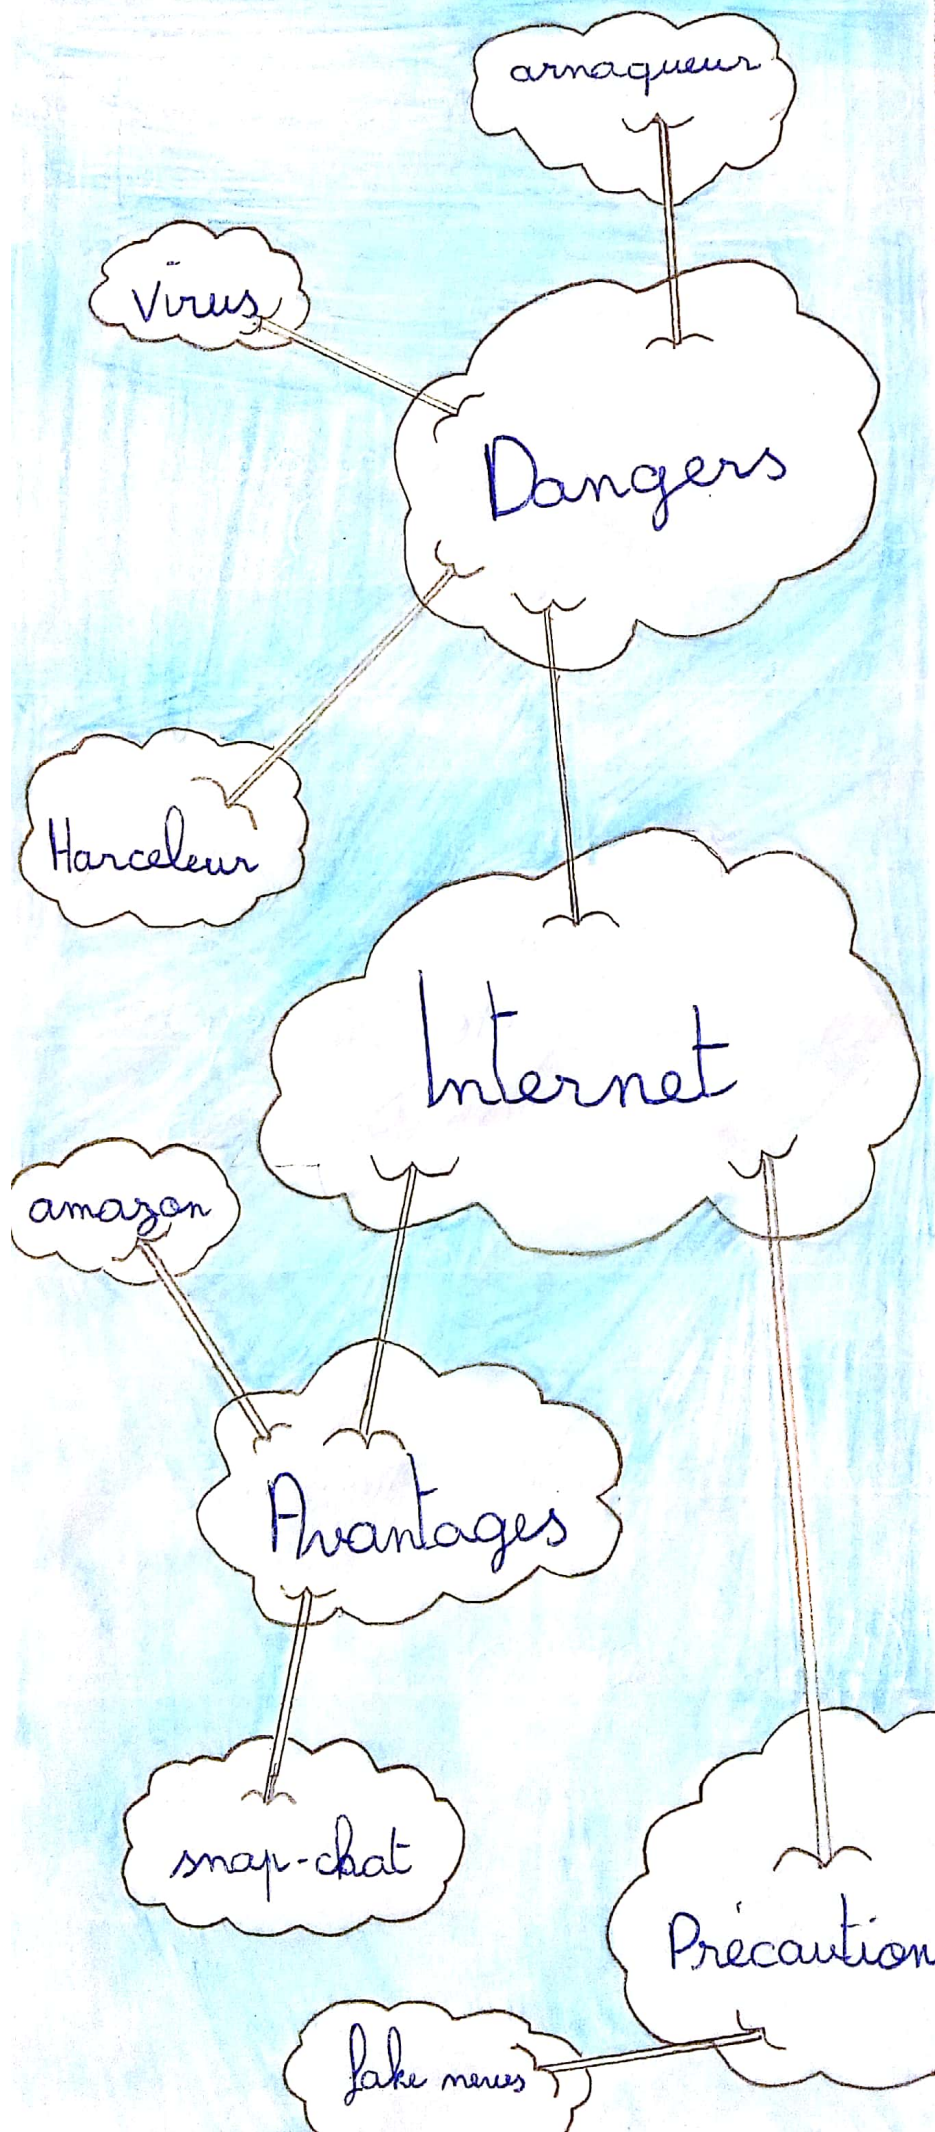 arnaqueur
Virus
Dangers
Harceleur
Internet
amazon
Avantages
snap-chat
Précaution
fake news